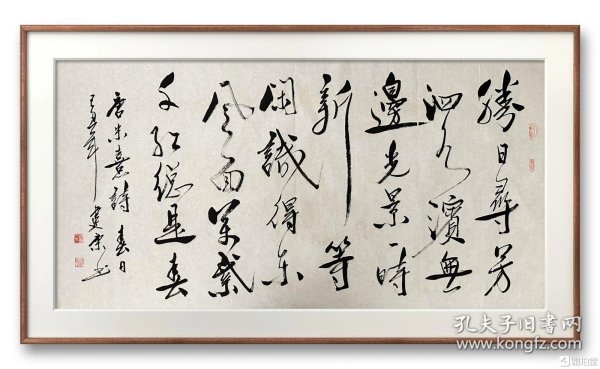 勝日尋芳
泗水濱無
邊光景一時
新等
閑識得东
風面萬紫
千紅總是春
唐朱熹詩 春日
辛丑年
孔夫子旧书网
www.kongfz.com
微拍堂